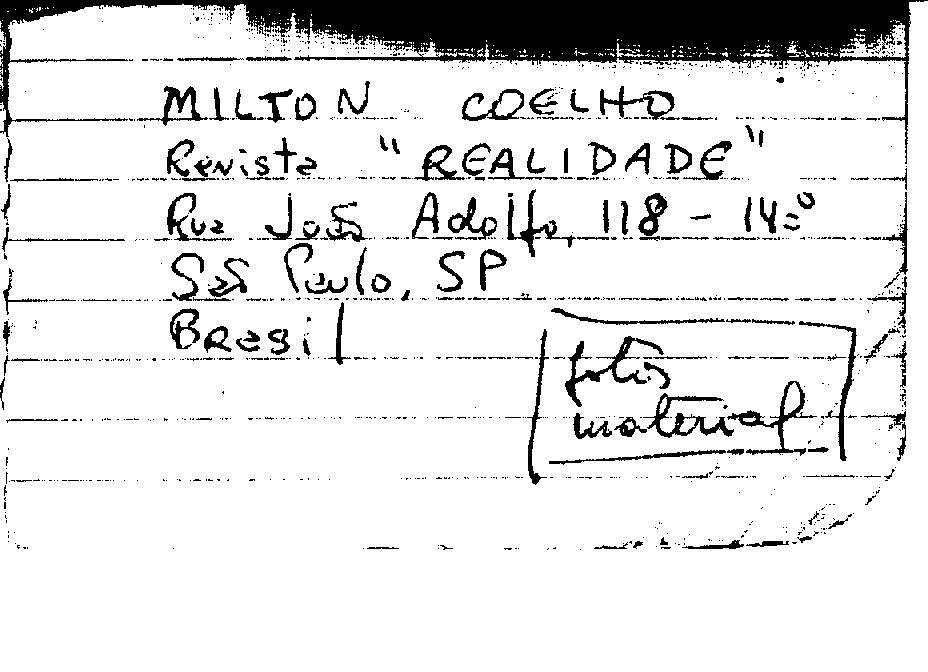 MILTON COELHO
Revista "REALIDADE"
Rua João Adolfo, 118 - 14º
São Paulo, SP
Brasil
fotos
material